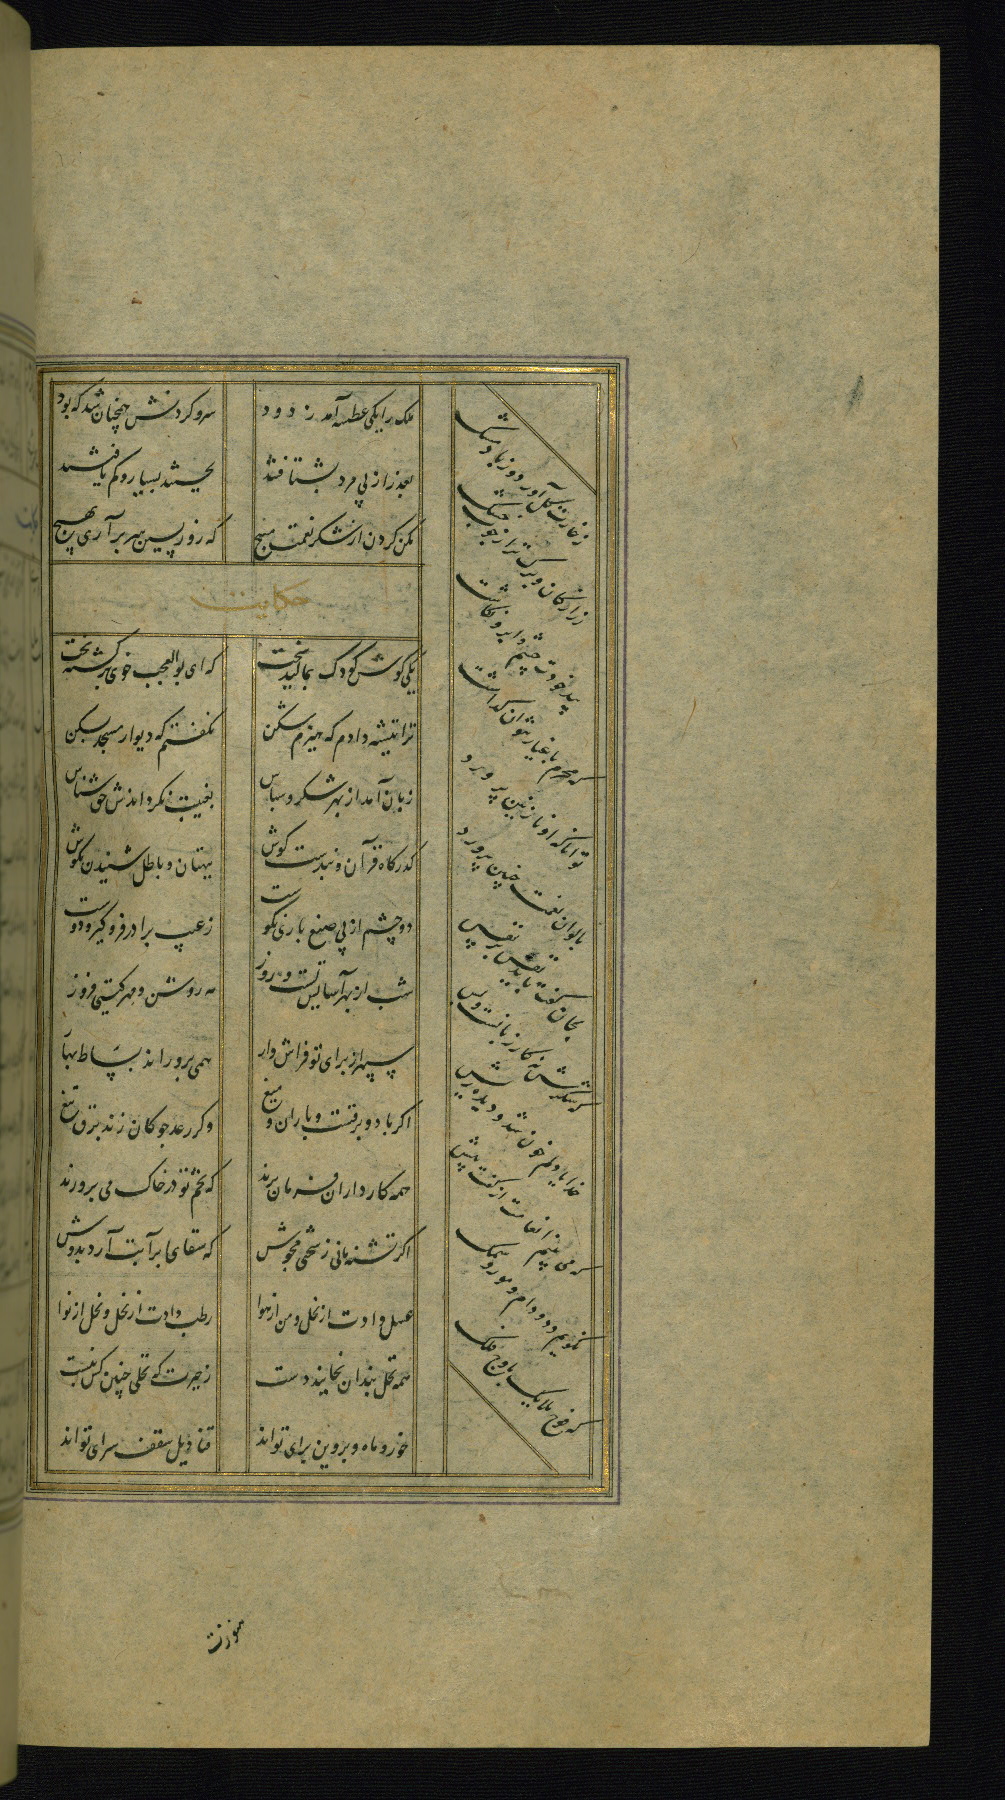 ملک را یکی عطسه آمد ز دود سر و گردنش همچنان شد که بود
بعذر از پی مرد بشتافتند بجستند بسیار و کم یافتند
مکن گردن از شکر منعم مپیچ که روز پسین سر برآری بهیچ
حکایت
یکی گوش کودک بمالید سخت که ای بوالعجب خوی برگشته بخت
ترا تیشه دادم که هیزم شکن نگفتم که دیوار مسجد بکن
زبان آمد از بهر شکر و سپاس بغیبت نگرداندش حق شناس
گذرگاه قرآن و پندست گوش ببهتان و باطل شنیدن مکوش
دو چشم از پی صنع باری نکوست ز عیب برادر فروگیر و دوست
شب از بهر آسایش تست و روز مه روشن و مهر گیتی فروز
سپهر از برای تو فراش وار همی پروراند بساط بهار
اگر باد و برفست و باران و میغ وگر رعد چوگان زند برق تیغ
همه کارداران فرمان برند که تخم تو در خاک می پرورند
اگر تشنه مانی ز سختی مجوش که سقای ابر آبت آرد بدوش
عسل دادت از نحل و من از هوا رطب دادت از نخل و نخل از نوا
همه نخل بندان بخایند دست ز حیرت که نخلی چنین کس نبست
خور و ماه و پروین برای تواند قنادیل سقف سرای تواند
ز خارت گل آورد و
زر از کان و برگ تر از چوب خشک
بخودت چشم و ابرو نگاشت
که محرم باغیار نتوان گذاشت
توانا که او نازنین پرورد
بالوان نعمت چنین پرورد
بجان گفت باید نفس بر نفس
که شکرش نه کار زبانست و بس
خدایا دلم خون شد و دیده ریش
که می بینم انعامت از گفت بیش
نگویم دد و دام و مور و سمک
که فوج ملایک باوج فلک
هنوزت